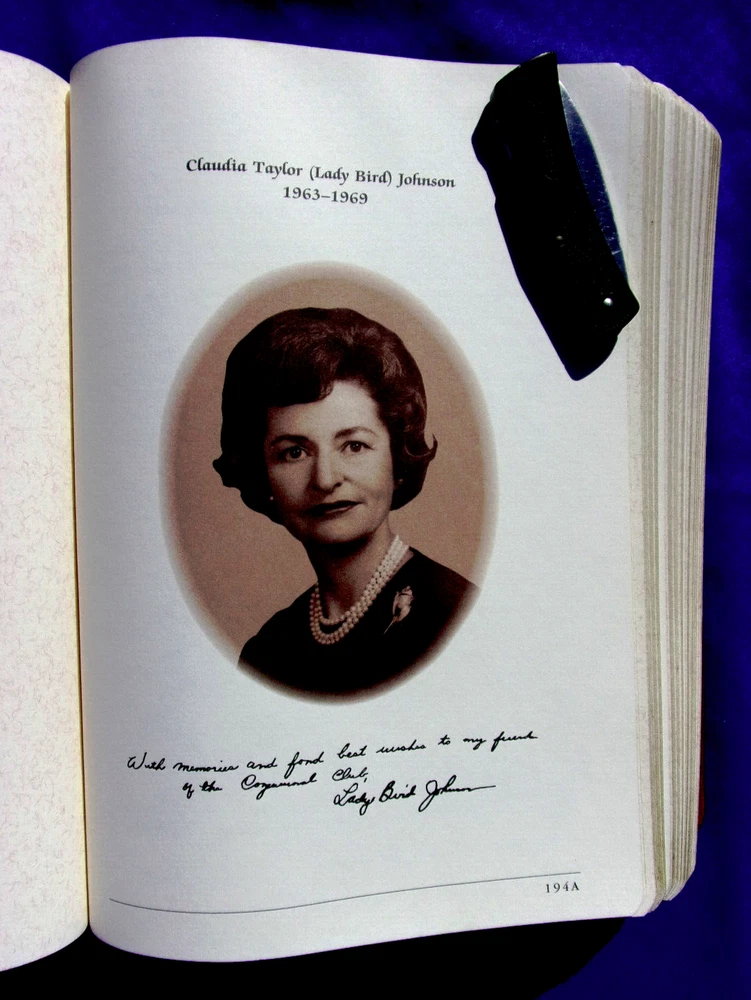 Claudia Taylor (Lady Bird) Johnson
1963–1969
With memories and fond best wishes to my friends
of the Congressional Club,
Lady Bird Johnson
194A